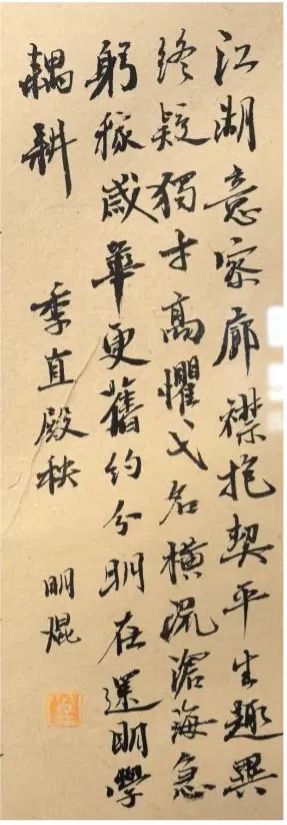 江湖意寥廓襟抱契平生趣異
終疑獨才高懼弋名橫流滄海急
躬稼歲華更舊約分明在還期學
耦耕
季直殿秩
明焜